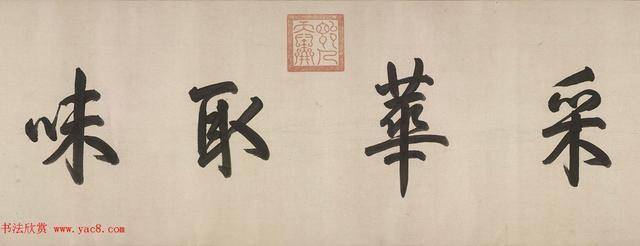 采華取味
书法欣赏 www.yac8.com